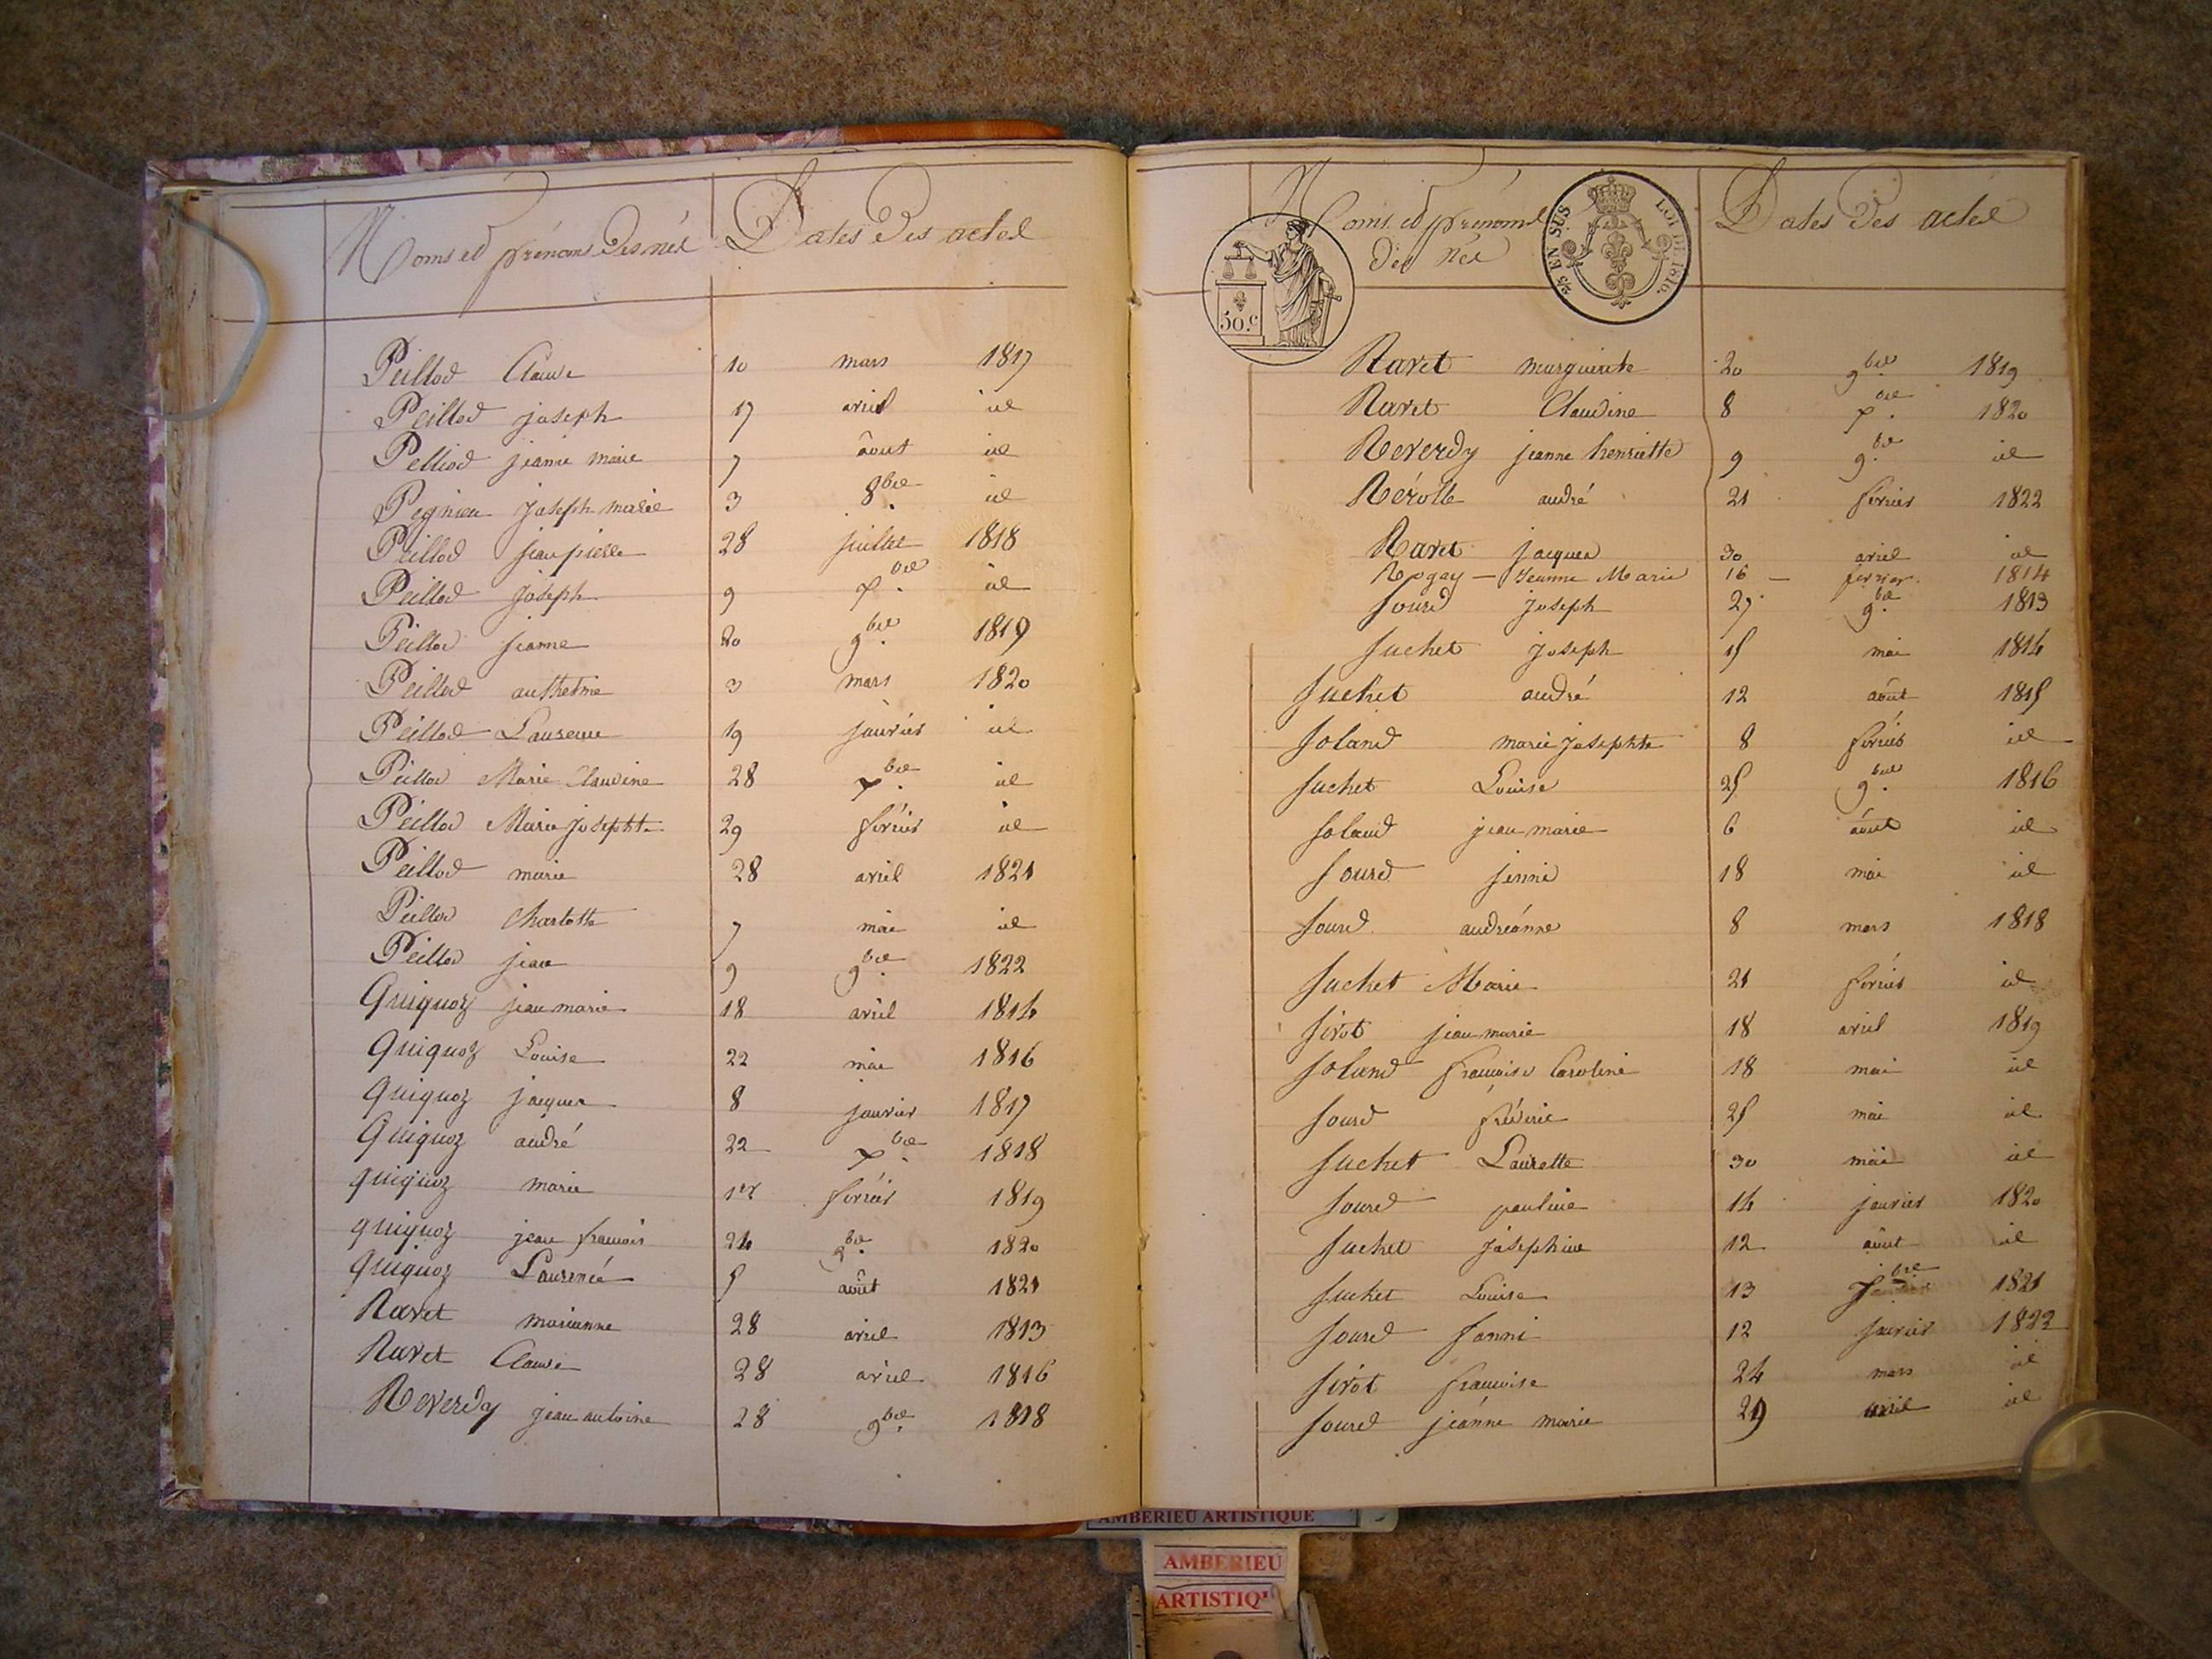 Noms et prénoms des nés Dates des actes
Peillod Claude 10 mars 1817
Peillod joseph 17 avril id
Pelliod jeanne marie 7 âout id
Pegnieu joseph marie 3 8bre id
Peillod jean pierre 28 juillet 1818
Peillod joseph 9 xbre id
Peillod jeanne 20 9bre 1819
Peillod anthelme 3 mars 1820
Peillod Laurence 19 janvier id
Peillod Marie Claudine 28 xbre id
Peillod Marie josephte 29 février id
Peillod marie 28 avril 1821
Peillod Charlotte 7 mai id
Peillod jean 9 9bre 1822
Quiquoz jean marie 18 avril 1814
Quiquoz Louise 22 mai 1816
Quiquoz jacques 8 janvier 1817
Quiquoz andré 22 xbre 1818
quiquoz marie 1er février 1819
quiquoz jean francois 24 9bre 1820
Quiquoz Laurence 5 août 1821
Ravet marianne 28 avril 1813
Ravet Claude 28 avril 1816
Reverdy jean antoine 28 9bre 1818
Noms et prénoms Dates des actes
des nés
50 c
25 EN SUS LOI DE 1816.
Ravet marguerite 20 9bre 1819
Ravet Claudine 8 xbre 1820
Reverdy jeanne henriette 9 9bre id
Rérolle andré 21 février 1822
Ravet jacques 30 avril id
Rogay — Jeanne Marie 16 — fevrier 1814
Sourd joseph 27 9bre 1813
Suchet joseph 15 mai 1814
Suchet andré 12 août 1815
Soland marie josephte 8 février id
Suchet Louise 25 9bre 1816
Soland jean marie 6 âout id
Sourd jenni 18 mai id
Sourd andréanne 8 mars 1818
Suchet Marie 21 février id
Sirot jean marie 18 avril 1819
Soland francoise Caroline 18 mai id
Sourd fréderic 25 mai id
Suchet Laurette 30 mai id
Sourd pauline 14 janvier 1820
Suchet josephine 12 âout id
Suchet Louise 13 1821
Sourd fanni 12 janvier 1822
Sirot francoise 24 mars id
Sourd jeanne marie 29 avril id
AMBERIEU ARTISTIQUE
AMBERIEU
ARTISTIQ